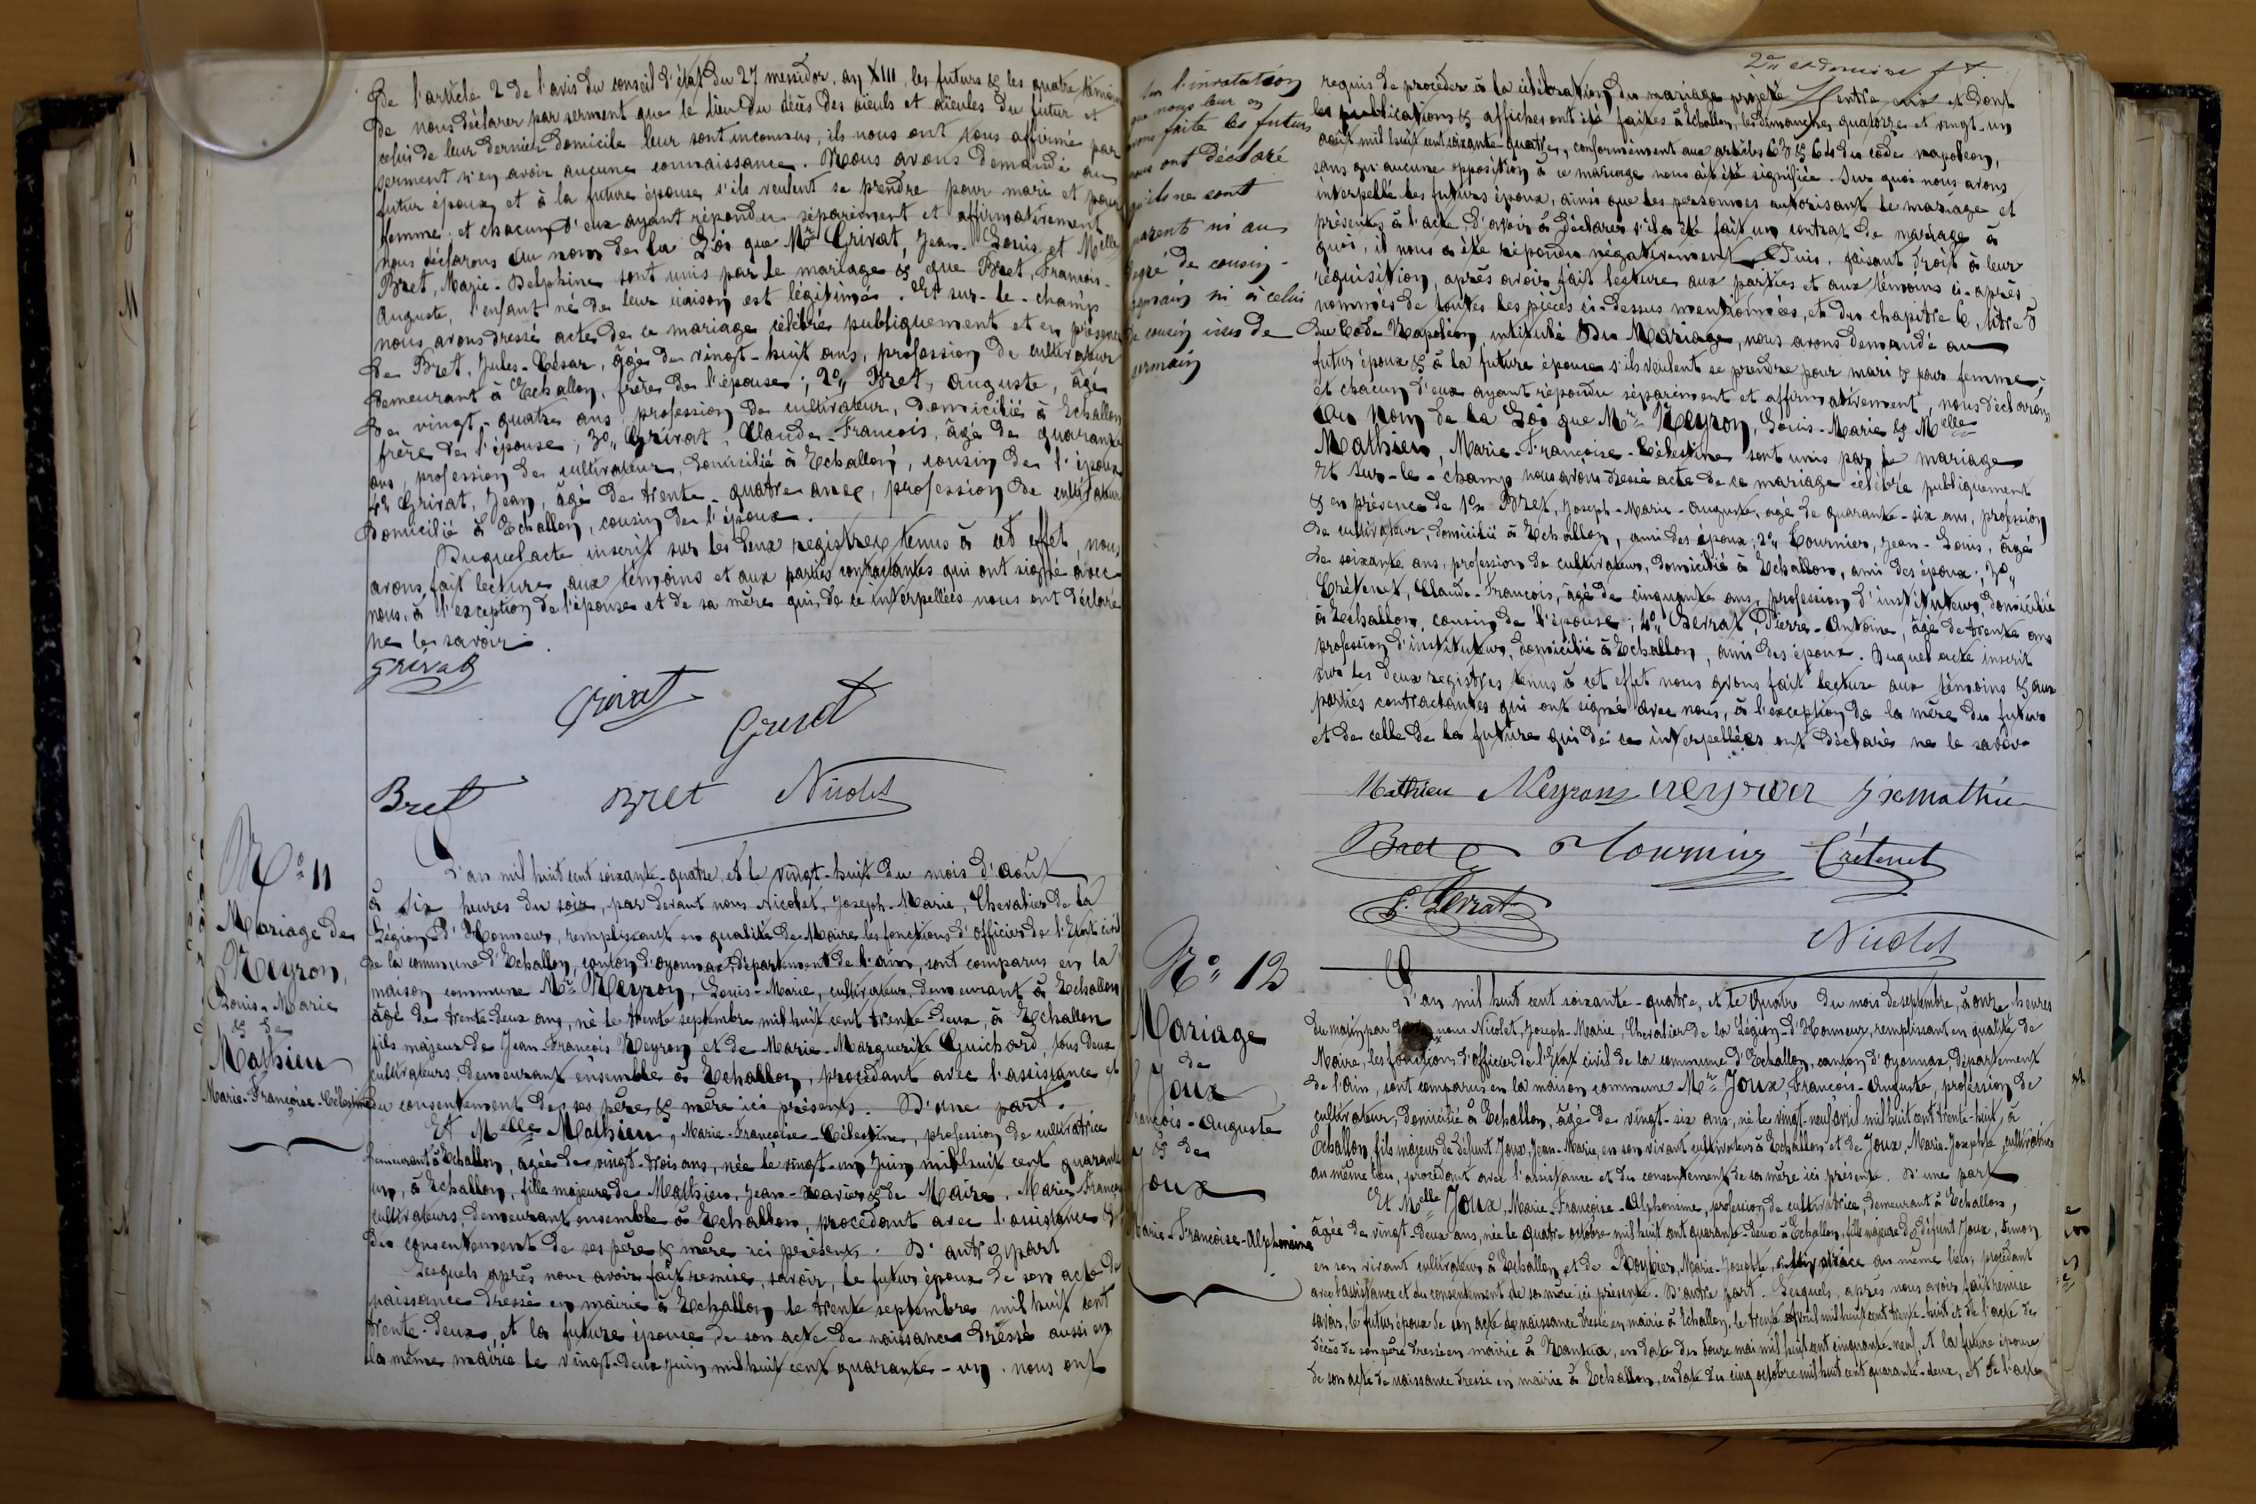 De l'article 2 de l'avis du conseil d'état du 27 messidor an XIII, les futurs & les quatre témoins
De nous déclarer par serment que le lieu du décès des aïeuls et aïeules du futur et
celui de leur dernier domicile leur sont inconnus, ils nous ont tous affirmé par
serment n'en avoir aucune connaissance. Nous avons demandé au
futur époux et à la future épouse s'ils veulent se prendre pour mari et pour
femme. et chacun d'eux ayant répondu séparément et affirmativement
nous déclarons au nom de la Loi que Mr Grivat, Jean-Louis et Melle
Bret, Marie-Delphine sont unis par le mariage & que Bret, François-
Auguste, l'enfant né de leur liaison est légitimé. Et sur-le-champ
nous avons dressé acte de ce mariage célébré publiquement et en présence
De Bret, Jules-César, âgé de vingt-huit ans, profession de cultivateur
demeurant à Echallon, frère de l'épouse; 2° Bret, Auguste, âgé
De vingt-quatre ans, profession de cultivateur, domicilié à Echallon
frère de l'épouse; 3° Grivat, Claude-François, âgé de quarante
ans, profession de cultivateur, domicilié à Echallon, cousin de l'époux
4° Grivat, Jean, âgé de trente-quatre ans, profession de cultivateur
Domicilié à Echallon, cousin de l'époux.
Duquel acte inscrit sur les deux registres tenus à cet effet, nous
avons fait lecture aux témoins et aux parties contractantes qui ont signé avec
nous, à l'exception de l'épouse et de sa mère qui, de ce interpellées nous ont déclaré
ne le savoir.
Grivat
Grivat
Grivat
Bret
Bret
Nicolet
N° 11
Mariage de
Neyron,
Louis-Marie
& de
Mathieu
Marie-Françoise-Célestine
L'an mil huit cent soixante-quatre et le vingt-huit du mois d'août
à six heures du soir, par devant nous Nicolet, Joseph-Marie, Chevalier de la
Légion d'Honneur, remplissant en qualité de Maire les fonctions d'officier de l'Etat civil
De la commune d'Echallon, canton d'oyonnax, département de l'ain, sont comparus en la
maison commune Mr Neyron, Louis-Marie, cultivateur, demeurant à Echallon
âgé de trente-deux ans, né le trente septembre mil huit cent trente-deux, à Echallon
fils majeur de Jean-François Neyron et de Marie-Marguerite Guichard, tous deux
cultivateurs, demeurant ensemble à Echallon, procédant avec l'assistance et
du consentement de ses père & mère ici présents. D'une part.
Et Melle Mathieu, Marie-Françoise-Célestine, profession de cultivatrice
demeurant à Echallon, agée de vingt-trois ans, née le vingt-un juin mil huit cent quarante
un, à Echallon, fille majeure de Mathieu, Jean-Xavier & de Maire, Marie-Françoise
cultivateurs, demeurant ensemble à Echallon, procédant avec l'assistance &
du consentement de ses père & mère ici présents. D'autre part
Lesquels après nous avoir fait remise, savoir, le futur époux de son acte de
naissance dressé en mairie à Echallon le trente septembre mil huit cent
trente-deux, et la future épouse de son acte de naissance dressé aussi en
la même mairie le vingt-deux juin mil huit cent quarante-un. nous ont
2me et dernier f t
Sur l'invitation
que nous leur en
avons faite les futurs
nous ont déclaré
qu'ils ne sont
parents ni au
degré de cousin-
germain ni à celui
de cousin issus de
germain
requis de procéder à la célébration du mariage projeté entre eux et dont
les publications & affiches ont été faites à Echallon, les dimanches quatorze et vingt-un
août mil huit cent soixante-quatre, conformément aux articles 63 & 64 du code napoléon,
sans qu'aucune opposition à ce mariage nous ait été signifiée. Sur quoi nous avons
interpellé les futurs époux, ainsi que les personnes autorisant le mariage et
présentes à l'acte, d'avoir à déclarer s'il a été fait un contrat de mariage à
quoi, il nous a été répondu négativement. Puis, faisant droit à leur
réquisition, après avoir fait lecture aux parties et aux témoins ci-après
nommés de toutes les pièces ci-dessus mentionnées, et du chapitre 6, titre 5
Du Code Napoléon, intitulé Du Mariage, nous avons demandé au
futur époux & à la future épouse s'ils veulent se prendre pour mari & pour femme;
et chacun d'eux ayant répondu séparément et affirmativement, nous déclarons
Au Nom de la Loi que Mr Neyron, Louis-Marie & Melle
Mathieu, Marie-Françoise-Célestine sont unis par le mariage
Et sur-le-champ nous avons dressé acte de ce mariage célébré publiquement
& en présence de 1° Bret, Joseph-Marie-Auguste, agé de quarante-six ans, profession
de cultivateur, domicilié à Echallon, ami des époux; 2° Tournier, Jean-Louis, âgé
De soixante ans, profession de cultivateur, domicilié à Echallon, ami des époux; 3°
Crétenet, Claude-François, âgé de cinquante ans, profession d'instituteur, domicilié
à Echallon, cousin de l'épouse; 4° Serrat, Pierre-Antoine, âgé de trente ans
profession d'instituteur, domicilié à Echallon, ami des époux. Duquel acte inscrit
sur les deux registres tenus à cet effet nous avons fait lecture aux témoins & aux
parties contractantes qui ont signé avec nous, à l'exception de la mère du futur
et de celle de la future qui de ce interpellées ont déclarés ne le savoir
Mathieu Neyron neyron Mathieu
Bret Tournier Crétenet
Nicolet
N° 12
Mariage
de
Joux
François-Auguste
& de
Joux
Marie-Françoise-Alphonsine
L'an mil huit cent soixante-quatre, et le quatre du mois de septembre, à onze heures
du matin, par nous Nicolet, Joseph-Marie, Chevalier de la Légion-d'Honneur, remplissant en qualité de
Maire, les fonctions d'officier de l'Etat civil de la commune d'Echallon, canton d'oyonnax, département
de l'ain, sont comparus en la maison commune Mr Joux, François-Auguste, profession de
cultivateur, domicilié à Echallon, âgé de vingt-six ans, né le vingt-neuf avril mil huit cent trente-huit, à
Echallon, fils majeur de défunt Joux, Jean-Marie, en son vivant cultivateur à Echallon et de Joux, Marie-Josephte, cultivatrice
au même lieu, procédant avec l'assistance et du consentement de sa mère ici présente. D'une part
Et Melle Joux, Marie-Françoise-Alphonsine, profession de cultivatrice, demeurant à Echallon,
âgée de vingt-deux ans, née le quatre octobre mil huit cent quarante-deux à Echallon, fille majeure de défunt Joux, Simon
en son vivant cultivateur à Echallon, et de Marie-Josephte, cultivatrice au même lieu, procédant
avec l'assistance et du consentement de sa mère ici présente. D'autre part. Lesquels, après nous avoir fait remise
savoir, le futur époux de son acte de naissance dressé en mairie à Echallon, le trente avril mil huit cent trente-huit et de l'acte de
décès de son père dressé en mairie à Nantua, en date du douze mai mil huit cent cinquante-neuf, et la future épouse
de son acte de naissance dressé en mairie à Echallon, en date du cinq octobre mil huit cent quarante-deux, et de l'acte